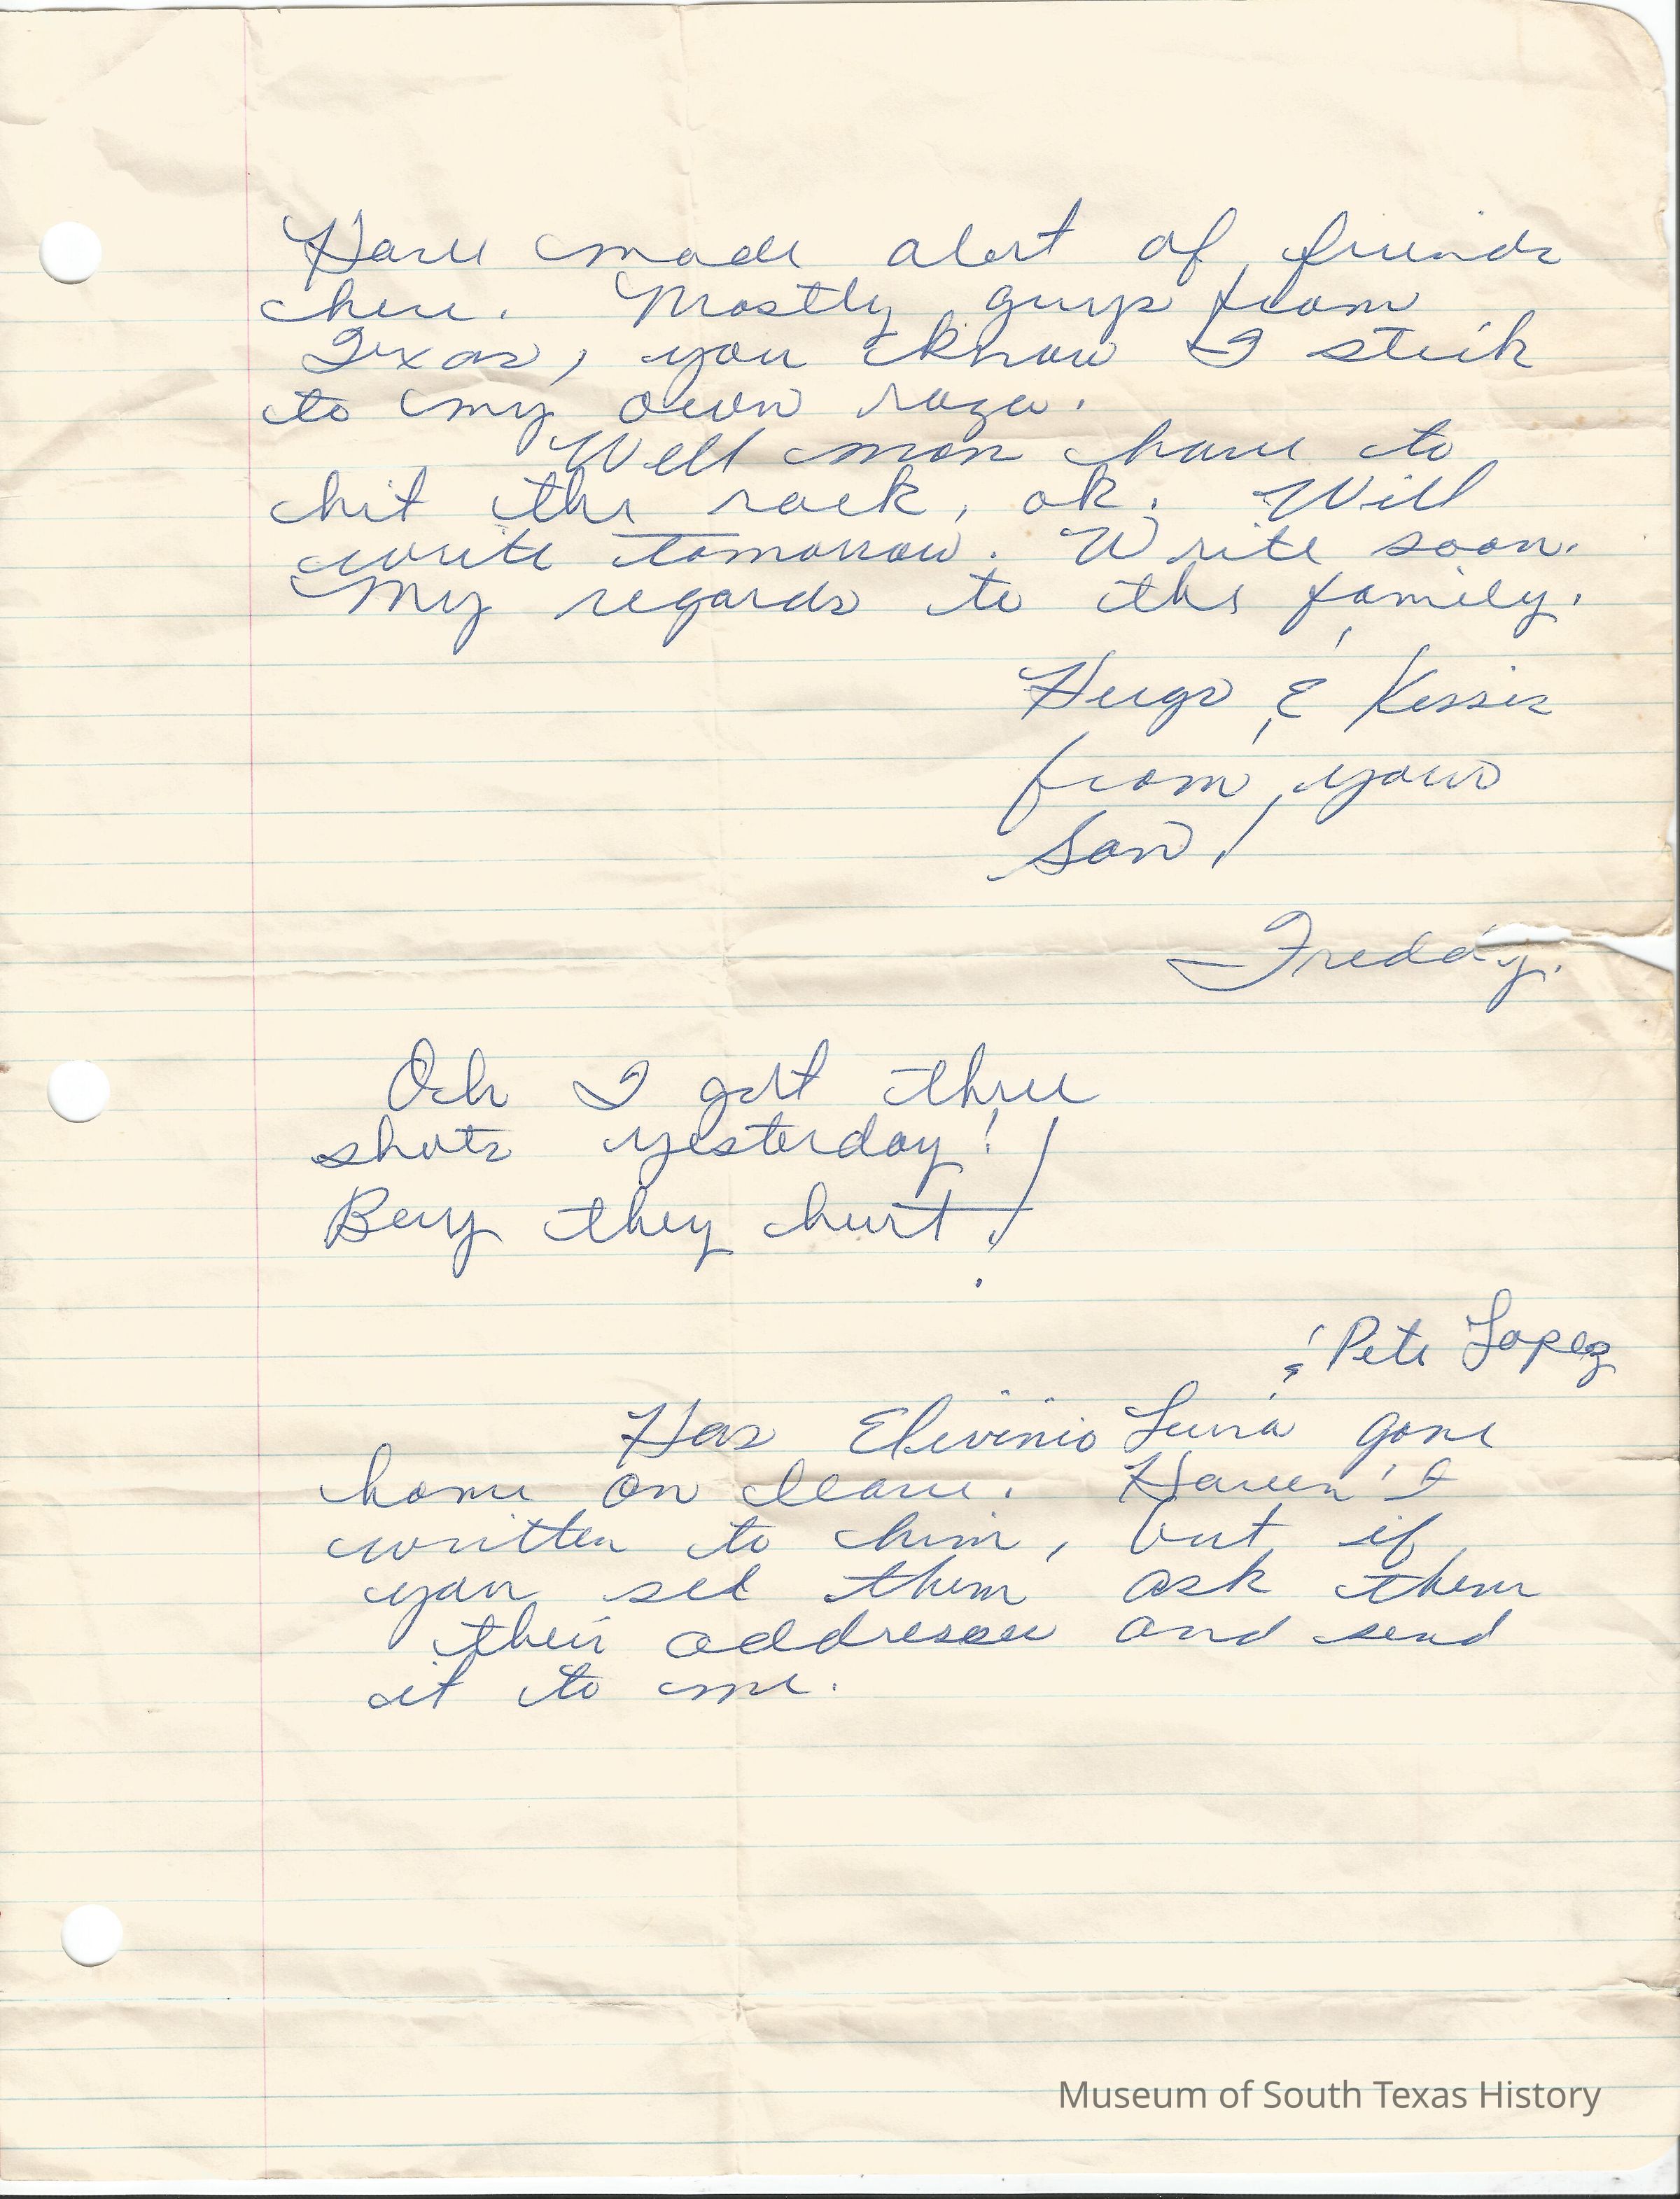 Have made alot of friends
here. Mostly guys from
Texas, you know I stick
to my own raza.
Well man have to
hit the rack, ok. Will
write tomorrow. Write soon.
My regards to the family.
Hugs & Kisses
from your
Son!
Freddy.
Oh I got three
shots yesterday!
Boy they hurt!
& Pete Lopez
Has Elivinio Luna gone
home on leave. Haven't
written to him, but if
you see them ask them
their addresses and send
it to me.
Museum of South Texas History